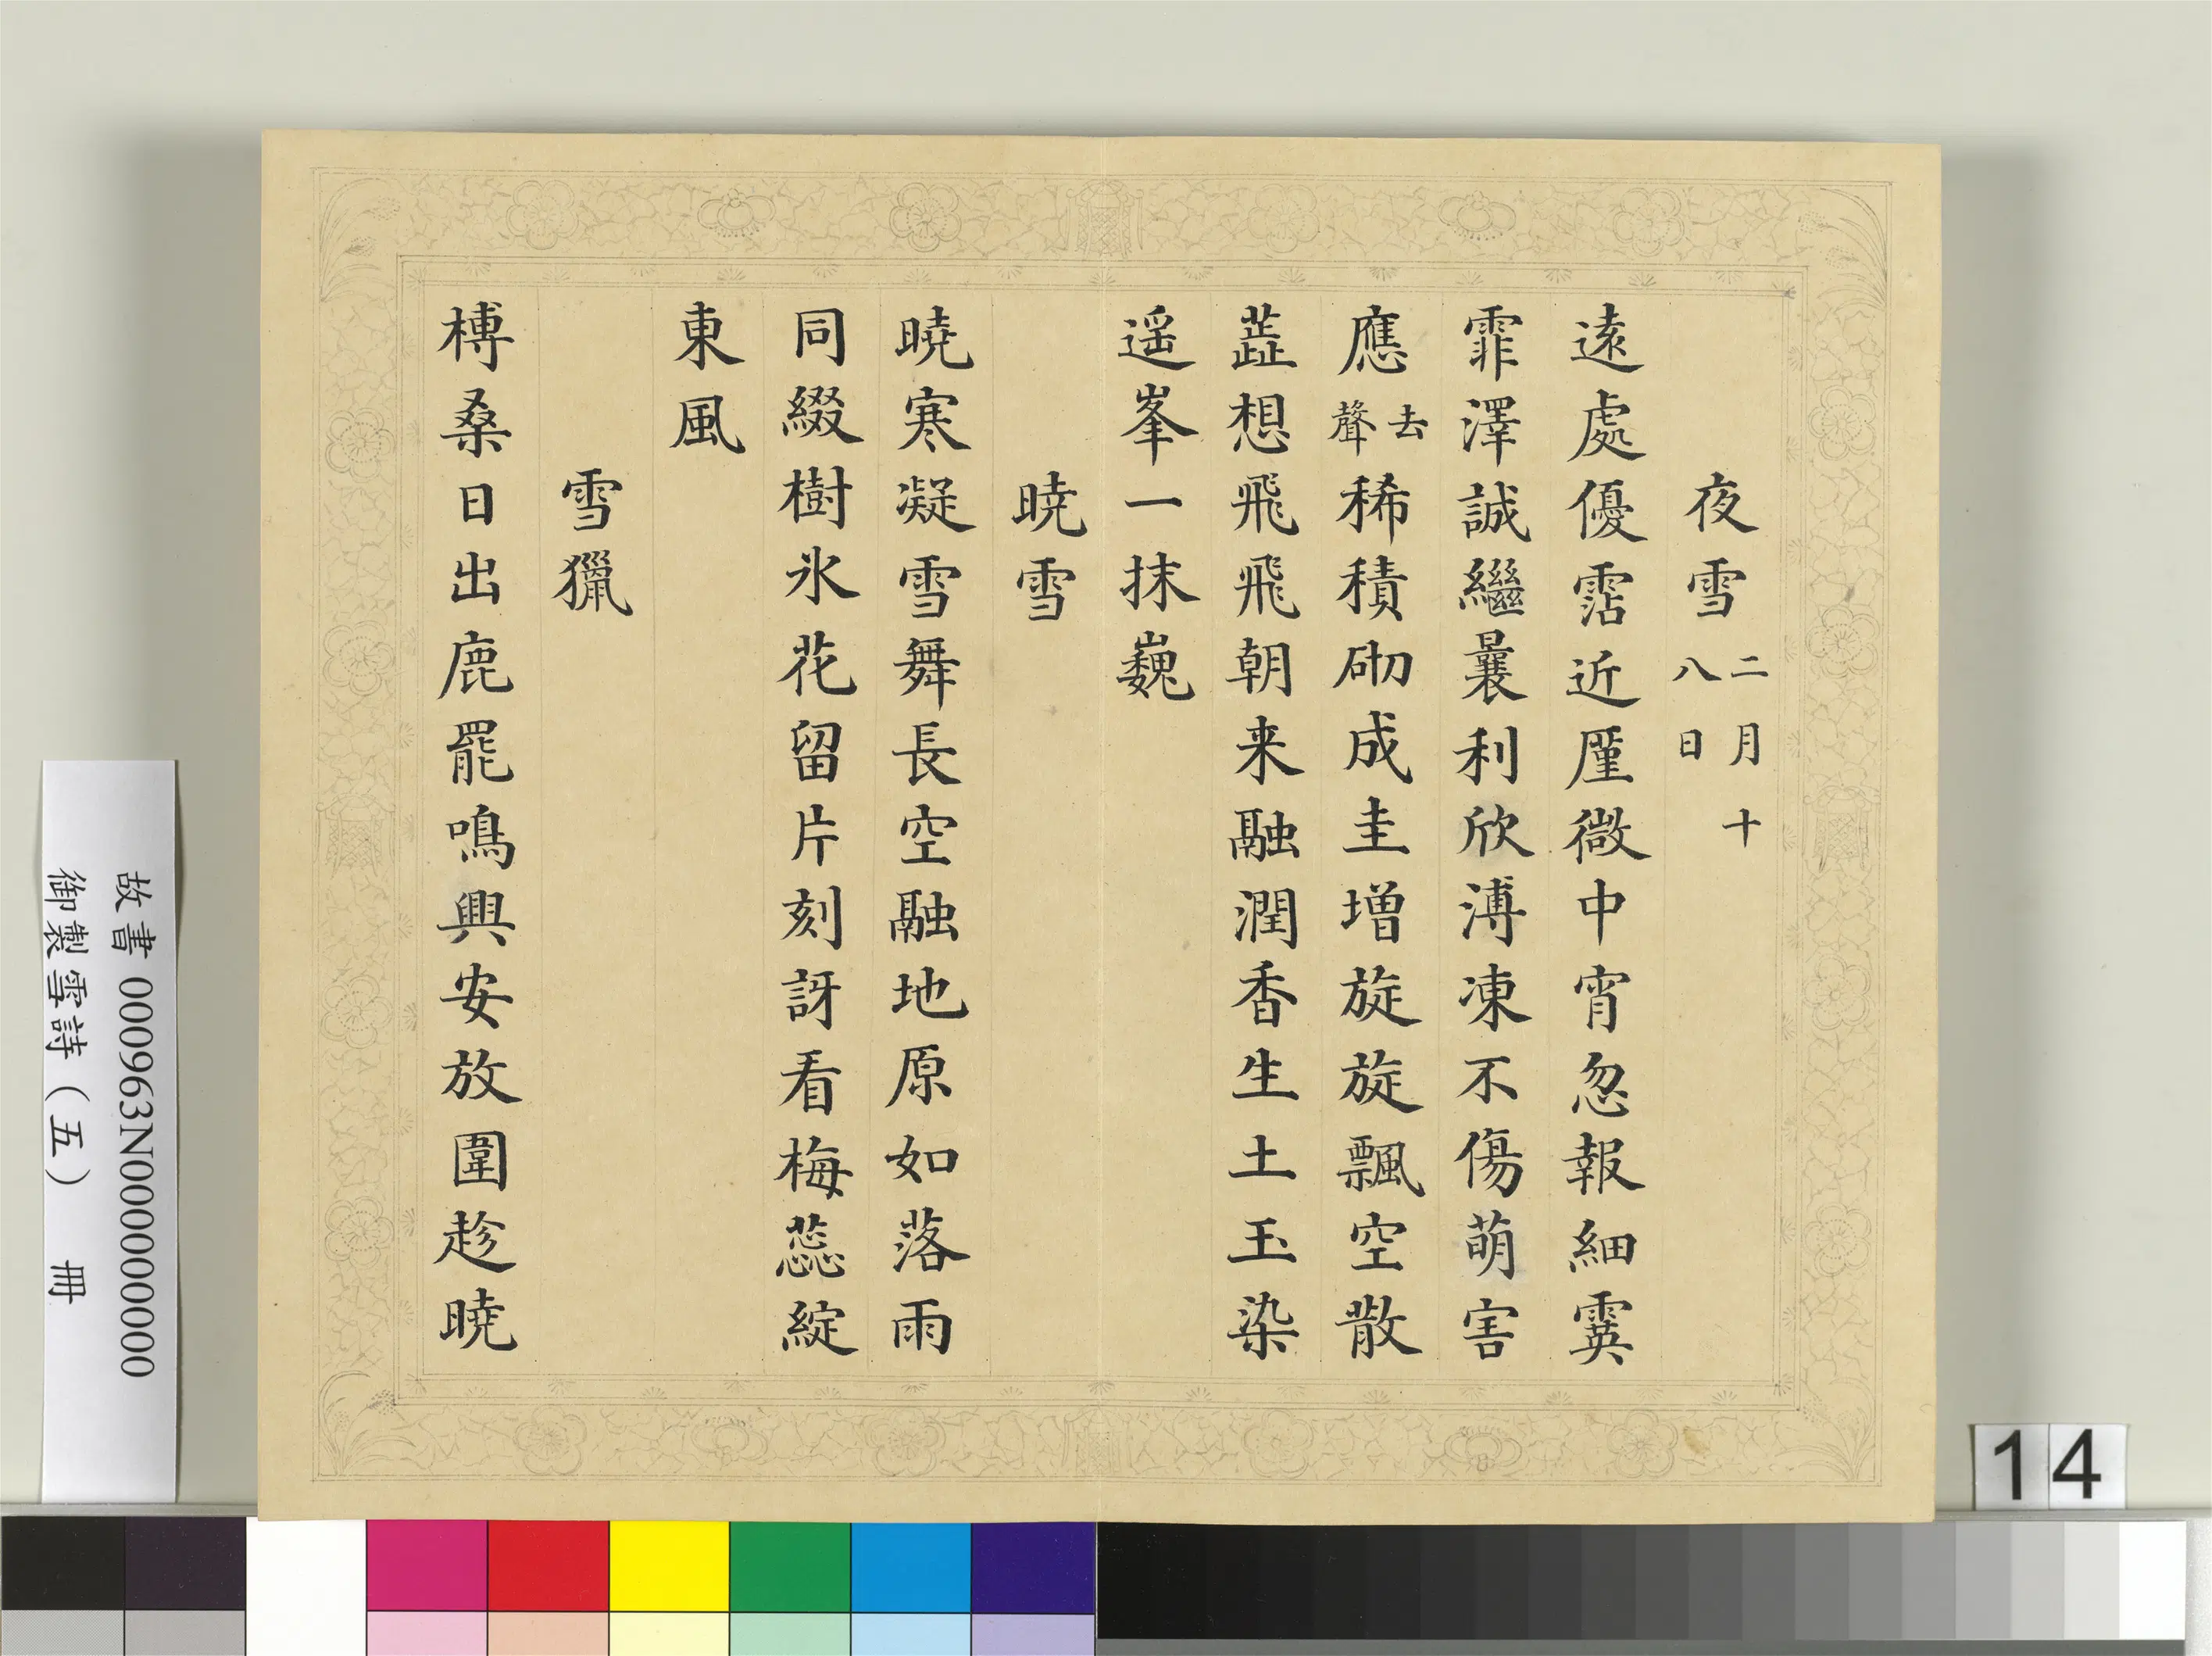 夜雪二月十八日
遠處優霑近厪微中宵忽報細霙
霏澤誠繼曩利欣溥凍不傷萌害
應去聲稀積砌成圭增旋旋飄空散
蕋想飛飛朝来融潤香生土玉染
遥峯一抹巍
曉雪
曉寒凝雪舞長空融地原如落雨
同綴樹氷花留片刻訝看梅蕊綻
東風
雪獵
榑桑日出鹿罷鳴興安放圍趁曉
故書 000963N000000000
御製雪詩(五) 冊
14